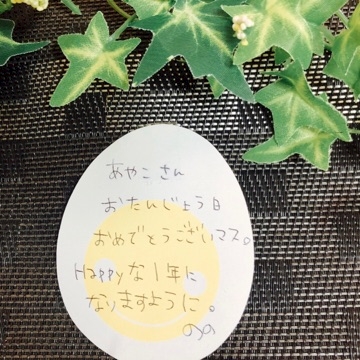 あやこさん
おたんじょう日
おめでとうございマス。
Happyな1年に
なりますように。
のの